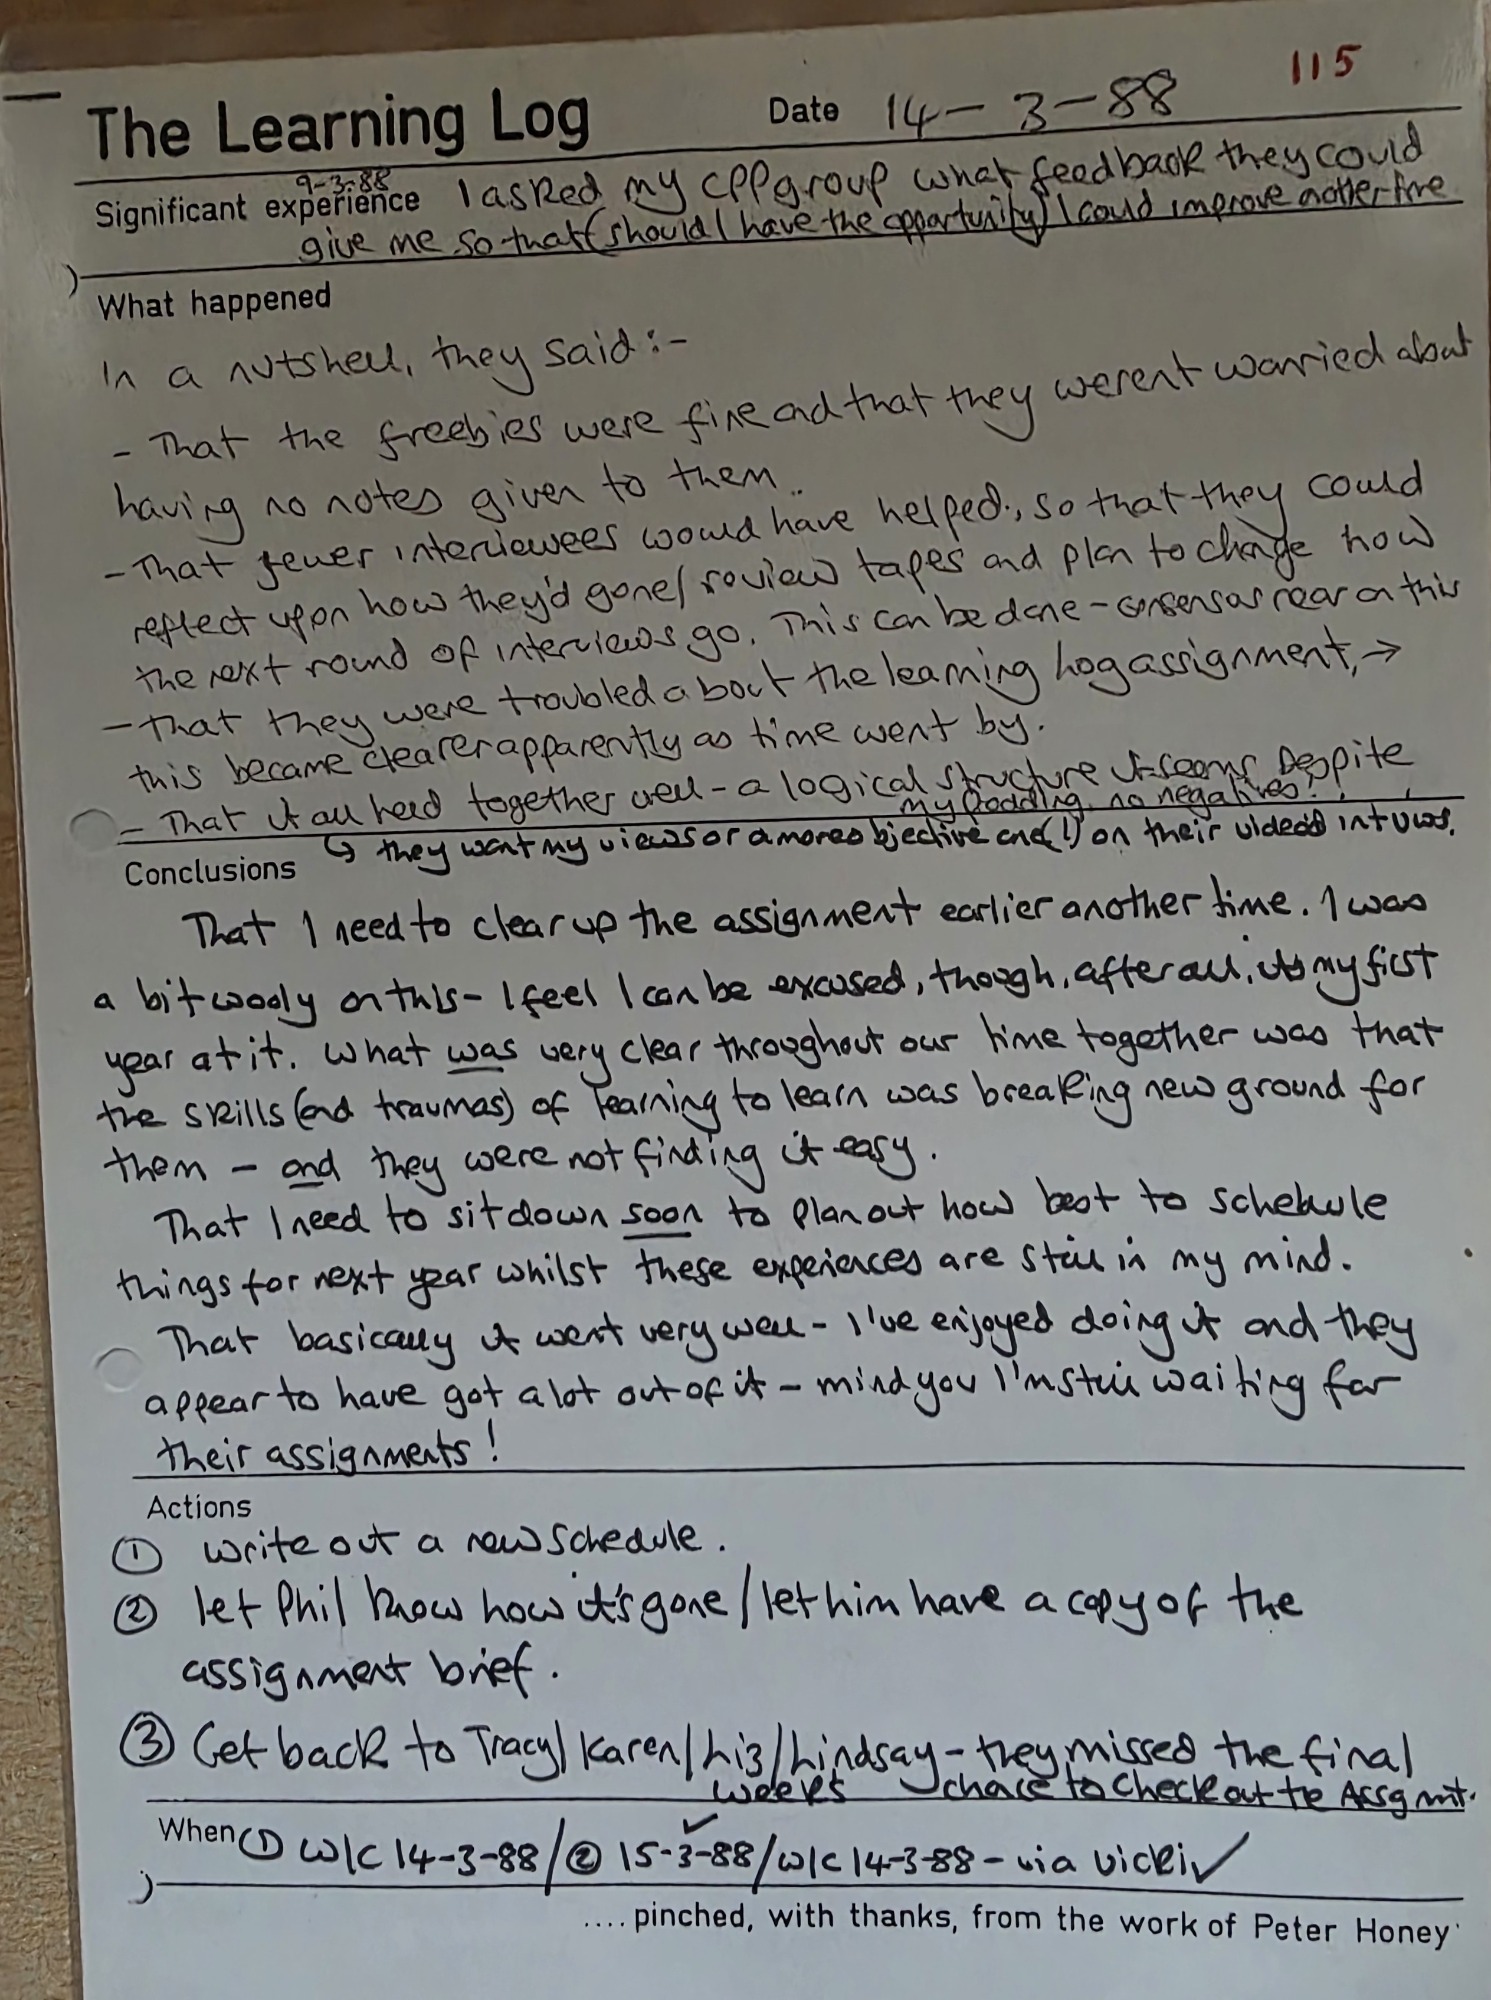 115
The Learning Log Date 14-3-88
9-3-88
Significant experience I asked my CPP group what feedback they could
give me so that (should I have the opportunity) I could improve another time
What happened
In a nutshell, they said:-
- That the freebies were fine and that they werent worried about
having no notes given to them.
- That fewer interviewees would have helped, so that they could
reflect upon how they'd gone/review tapes and plan to change how
the next round of interviews go. This can be done - consensus near on this
- That they were troubled about the learning log assignment, →
this became clearer apparently as time went by.
- That it all held together well - a logical structure it seems. Despite
my prodding, no negatives!
↳ they want my views or a more objective one (!) on their video'd intvws.
Conclusions
That I need to clear up the assignment earlier another time. I was
a bit wooly on this - I feel I can be excused, though, after all, its my first
year at it. What was very clear throughout our time together was that
the skills (and traumas) of learning to learn was breaking new ground for
them - and they were not finding it easy.
That I need to sit down soon to plan out how best to schedule
things for next year whilst these experiences are still in my mind.
That basically it went very well - I've enjoyed doing it and they
appear to have got a lot out of it - mind you I'm still waiting for
their assignments!
Actions
① Write out a new schedule.
② let Phil know how it's gone/let him have a copy of the
assignment brief.
③ Get back to Tracy/Karen/Liz/Lindsay - they missed the final
weeks chance to check out the Assgmt.
When ① W/C 14-3-88/② 15-3-88/w/c 14-3-88 - via Vicki ✓
....pinched, with thanks, from the work of Peter Honey